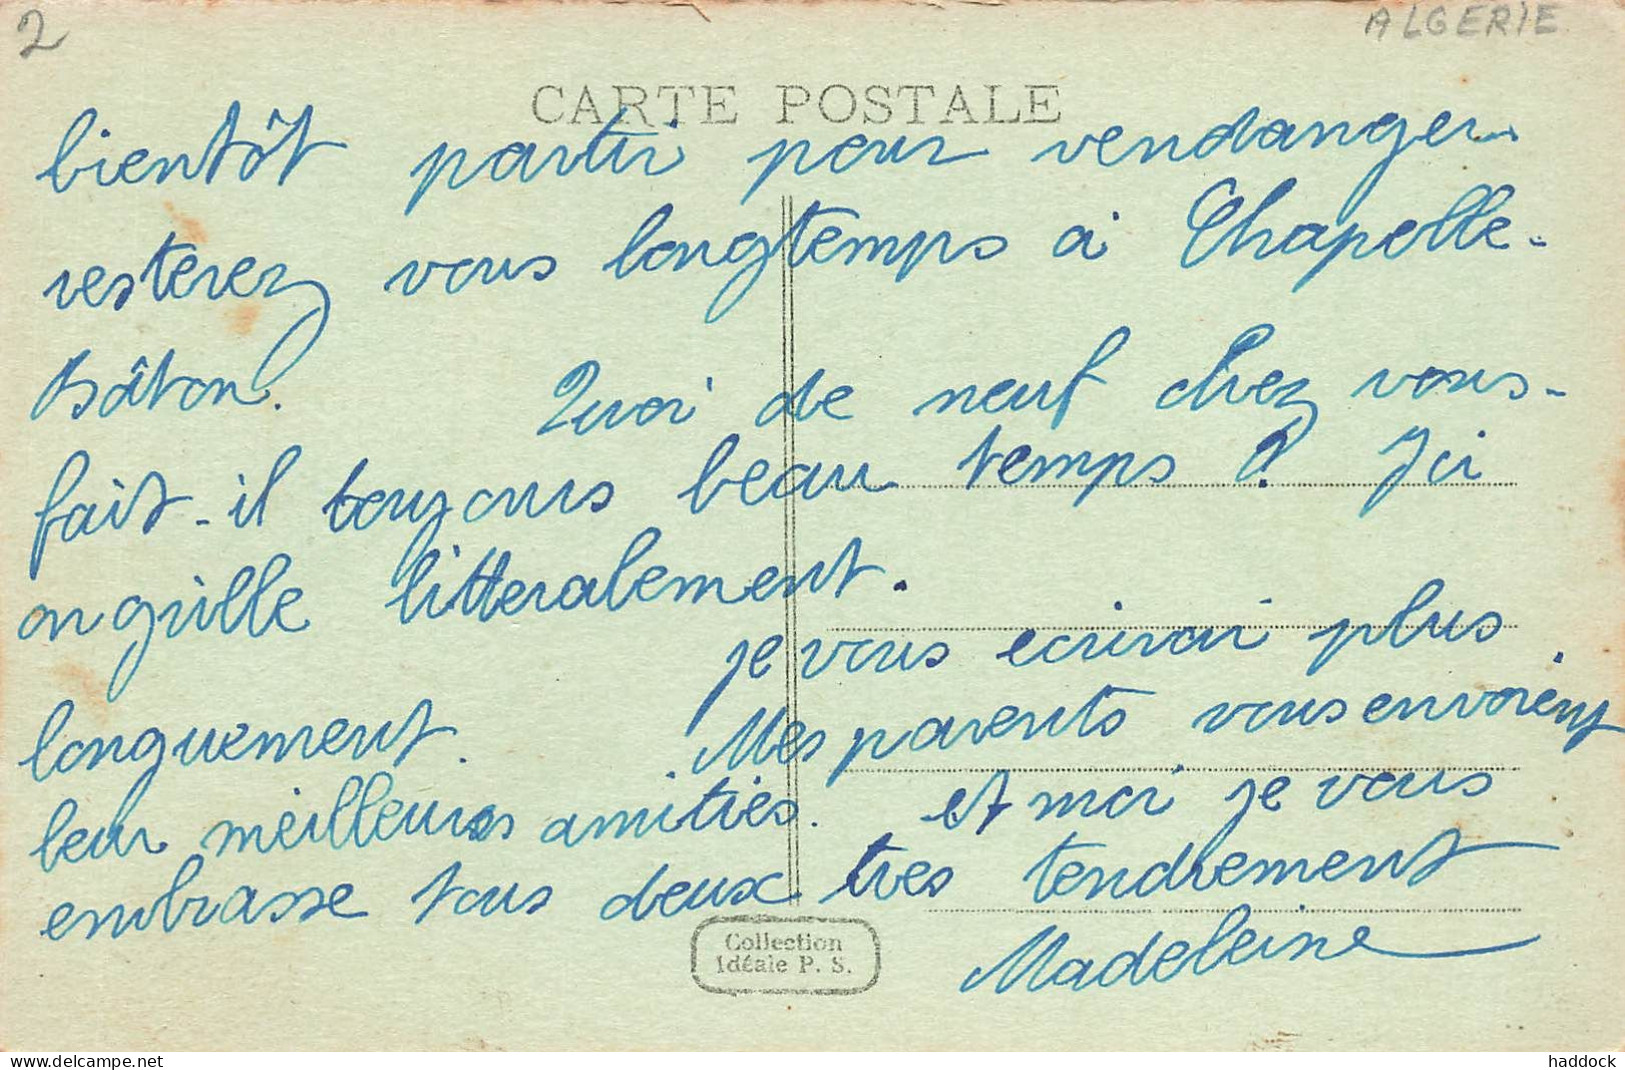 2
ALGERIE
CARTE POSTALE
bientôt partir pour vendanger.
resterez vous longtemps à Chapelle-
Bâton. Quoi de neuf chez vous-
fait-il toujours beau temps ? Ici
on grille litteralement.
je vous ecrirai plus
longuement. Mes parents vous envoient
leur meilleures amitiés. et moi je vous
embrasse tous deux tres tendrement
Madeleine
Collection
Idéale P. S.
www.delcampe.net
haddock